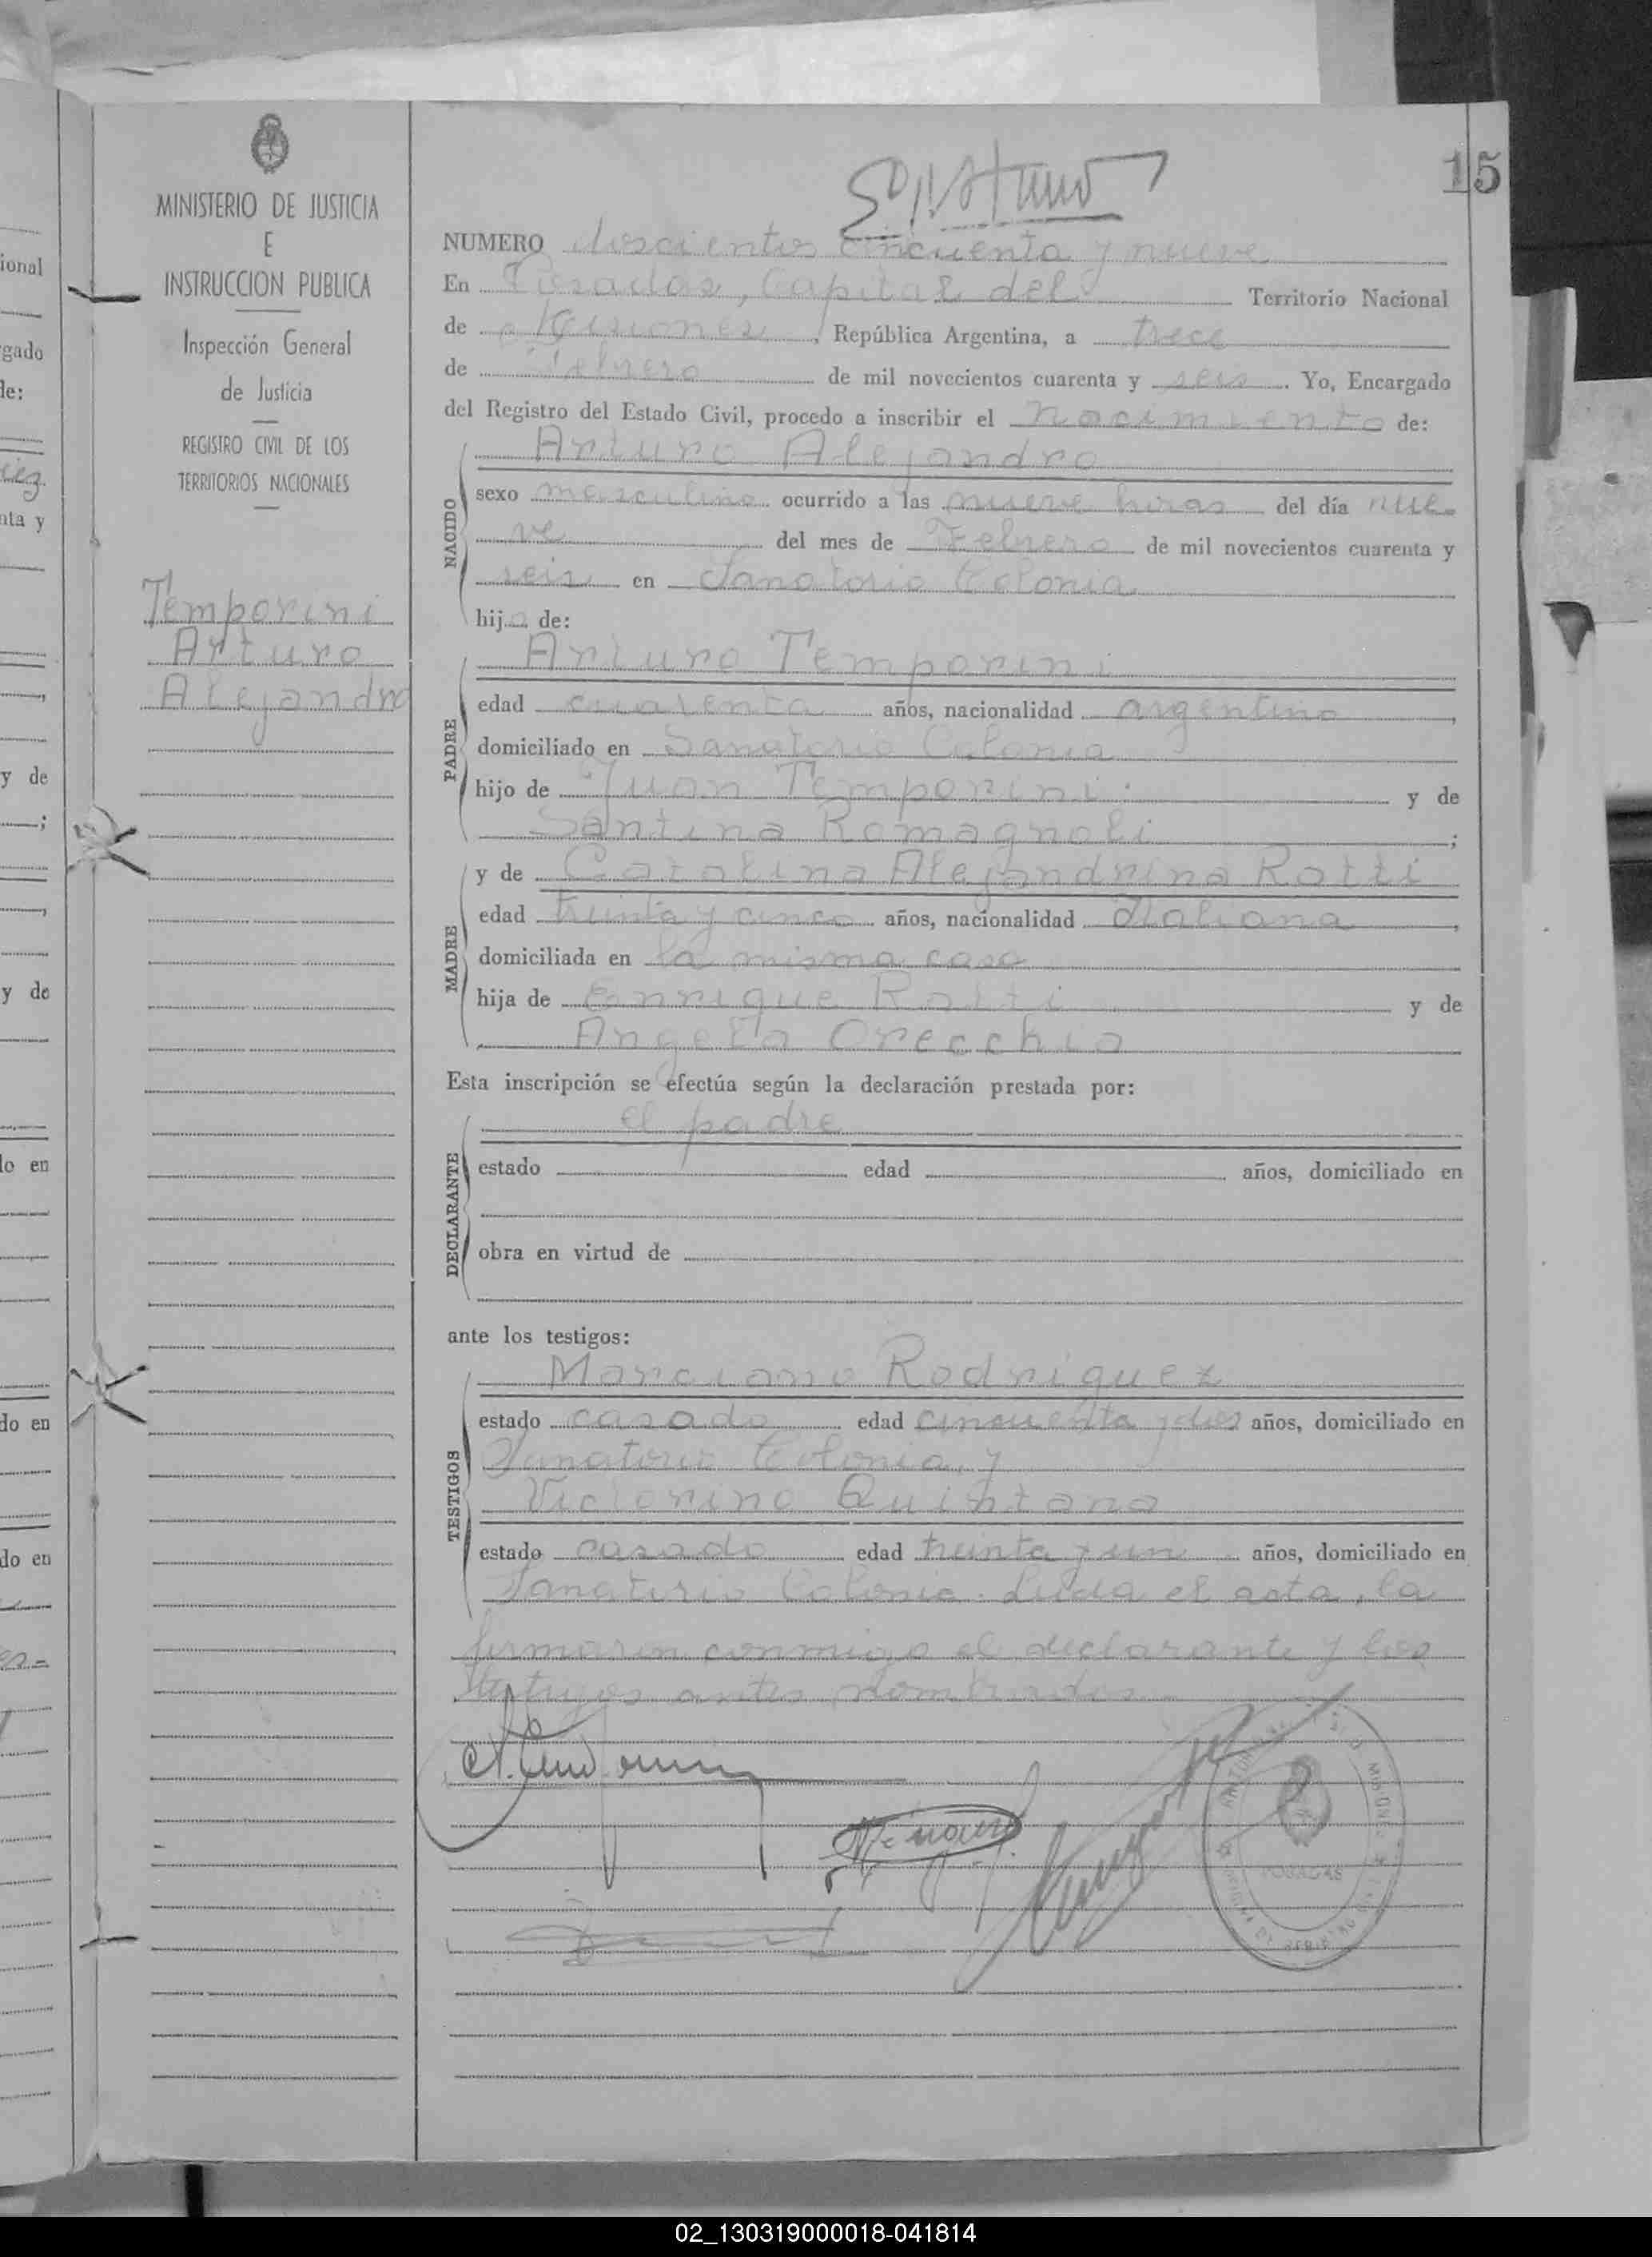 15
MINISTERIO DE JUSTICIA
E
INSTRUCCION PUBLICA
Inspección General
de Justicia
REGISTRO CIVIL DE LOS
TERRITORIOS NACIONALES
Temporini
Arturo
Alejandro
NUMERO doscientos cincuenta y nueve
En Posadas, Capital del Territorio Nacional
de Misiones, República Argentina, a trece
de Febrero de mil novecientos cuarenta y seis. Yo, Encargado
del Registro del Estado Civil, procedo a inscribir el nacimiento de:
Arturo Alejandro
NACIDO
sexo masculino ocurrido a las nueve horas del día nue-
ve del mes de Febrero de mil novecientos cuarenta y
seis en Sanatorio Colonia
hijo de:
Arturo Temporini
PADRE
edad cuarenta años, nacionalidad argentino,
domiciliado en Sanatorio Colonia
hijo de Juan Temporini y de
Santina Romagnoli;
MADRE
y de Catalina Alejandrina Rotti
edad treinta y cinco años, nacionalidad Italiana,
domiciliada en la misma casa
hija de Enrique Rotti y de
Angela Orecchia
Esta inscripción se efectúa según la declaración prestada por:
el padre
DECLARANTE
estado edad años, domiciliado en
obra en virtud de
ante los testigos:
Marciano Rodriguez
TESTIGOS
estado casado edad cincuenta y dos años, domiciliado en
Sanatorio Colonia, y
Victorino Quintana
estado casado edad treinta y un años, domiciliado en
Sanatorio Colonia. Leida el acta, la
firmaron conmigo el declarante y los
testigos antes nombrados.
POSADAS
ional
gado
de:
nta y
y de
y de
do en
do en
do en
02_130319000018-041814